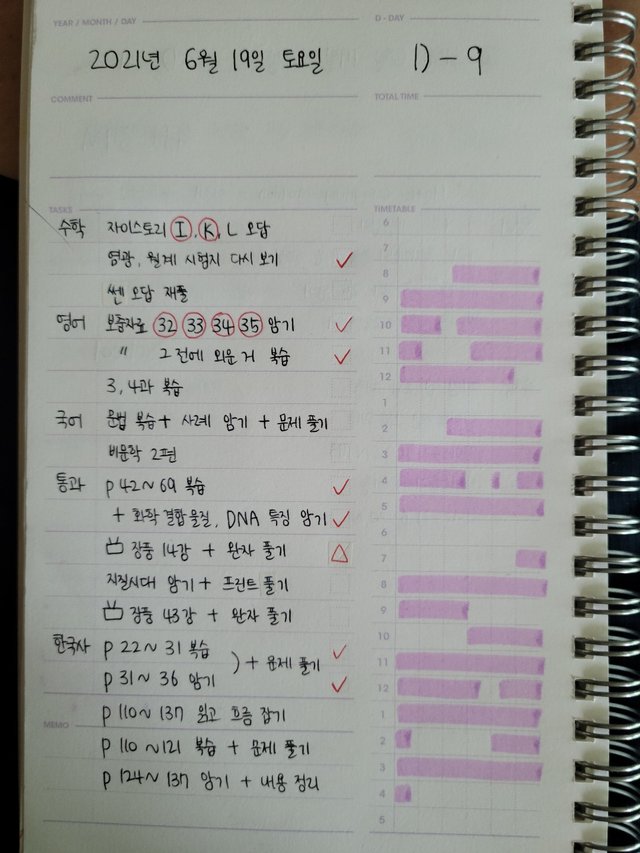 YEAR / MONTH / DAY
D - DAY
2021년 6월 19일 토요일
D - 9
COMMENT
TOTAL TIME
TASKS
TIMETABLE
수학 자이스토리 I, K, L 오답
영광, 월계 시험지 다시 보기
쎈 오답 재풀
영어 보충자료 32 33 34 35 암기
〃 그 전에 외운 거 복습
3, 4과 복습
국어 문법 복습 + 사례 암기 + 문제 풀기
비문학 2편
통과 p 42~69 복습
+ 화학 결합 물질, DNA 특징 암기
장풍 14강 + 완자 풀기
지질시대 암기 + 프린트 풀기
장풍 43강 + 완자 풀기
한국사 p 22~31 복습
) + 문제 풀기
p 31~36 암기
p 110~137 읽고 흐름 잡기
MEMO
p 110~121 복습 + 문제 풀기
p 124~137 암기 + 내용 정리
6
7
8
9
10
11
12
1
2
3
4
5
6
7
8
9
10
11
12
1
2
3
4
5